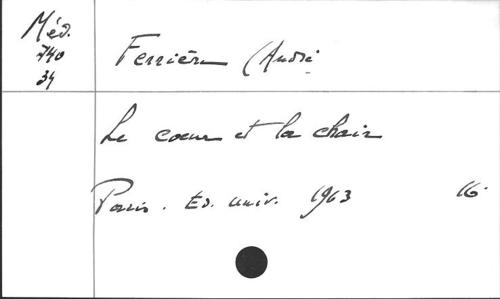 Méd.
740
34
Ferrière (André
Le coeur et la chair
Paris. Ed. univ. 1963 16°